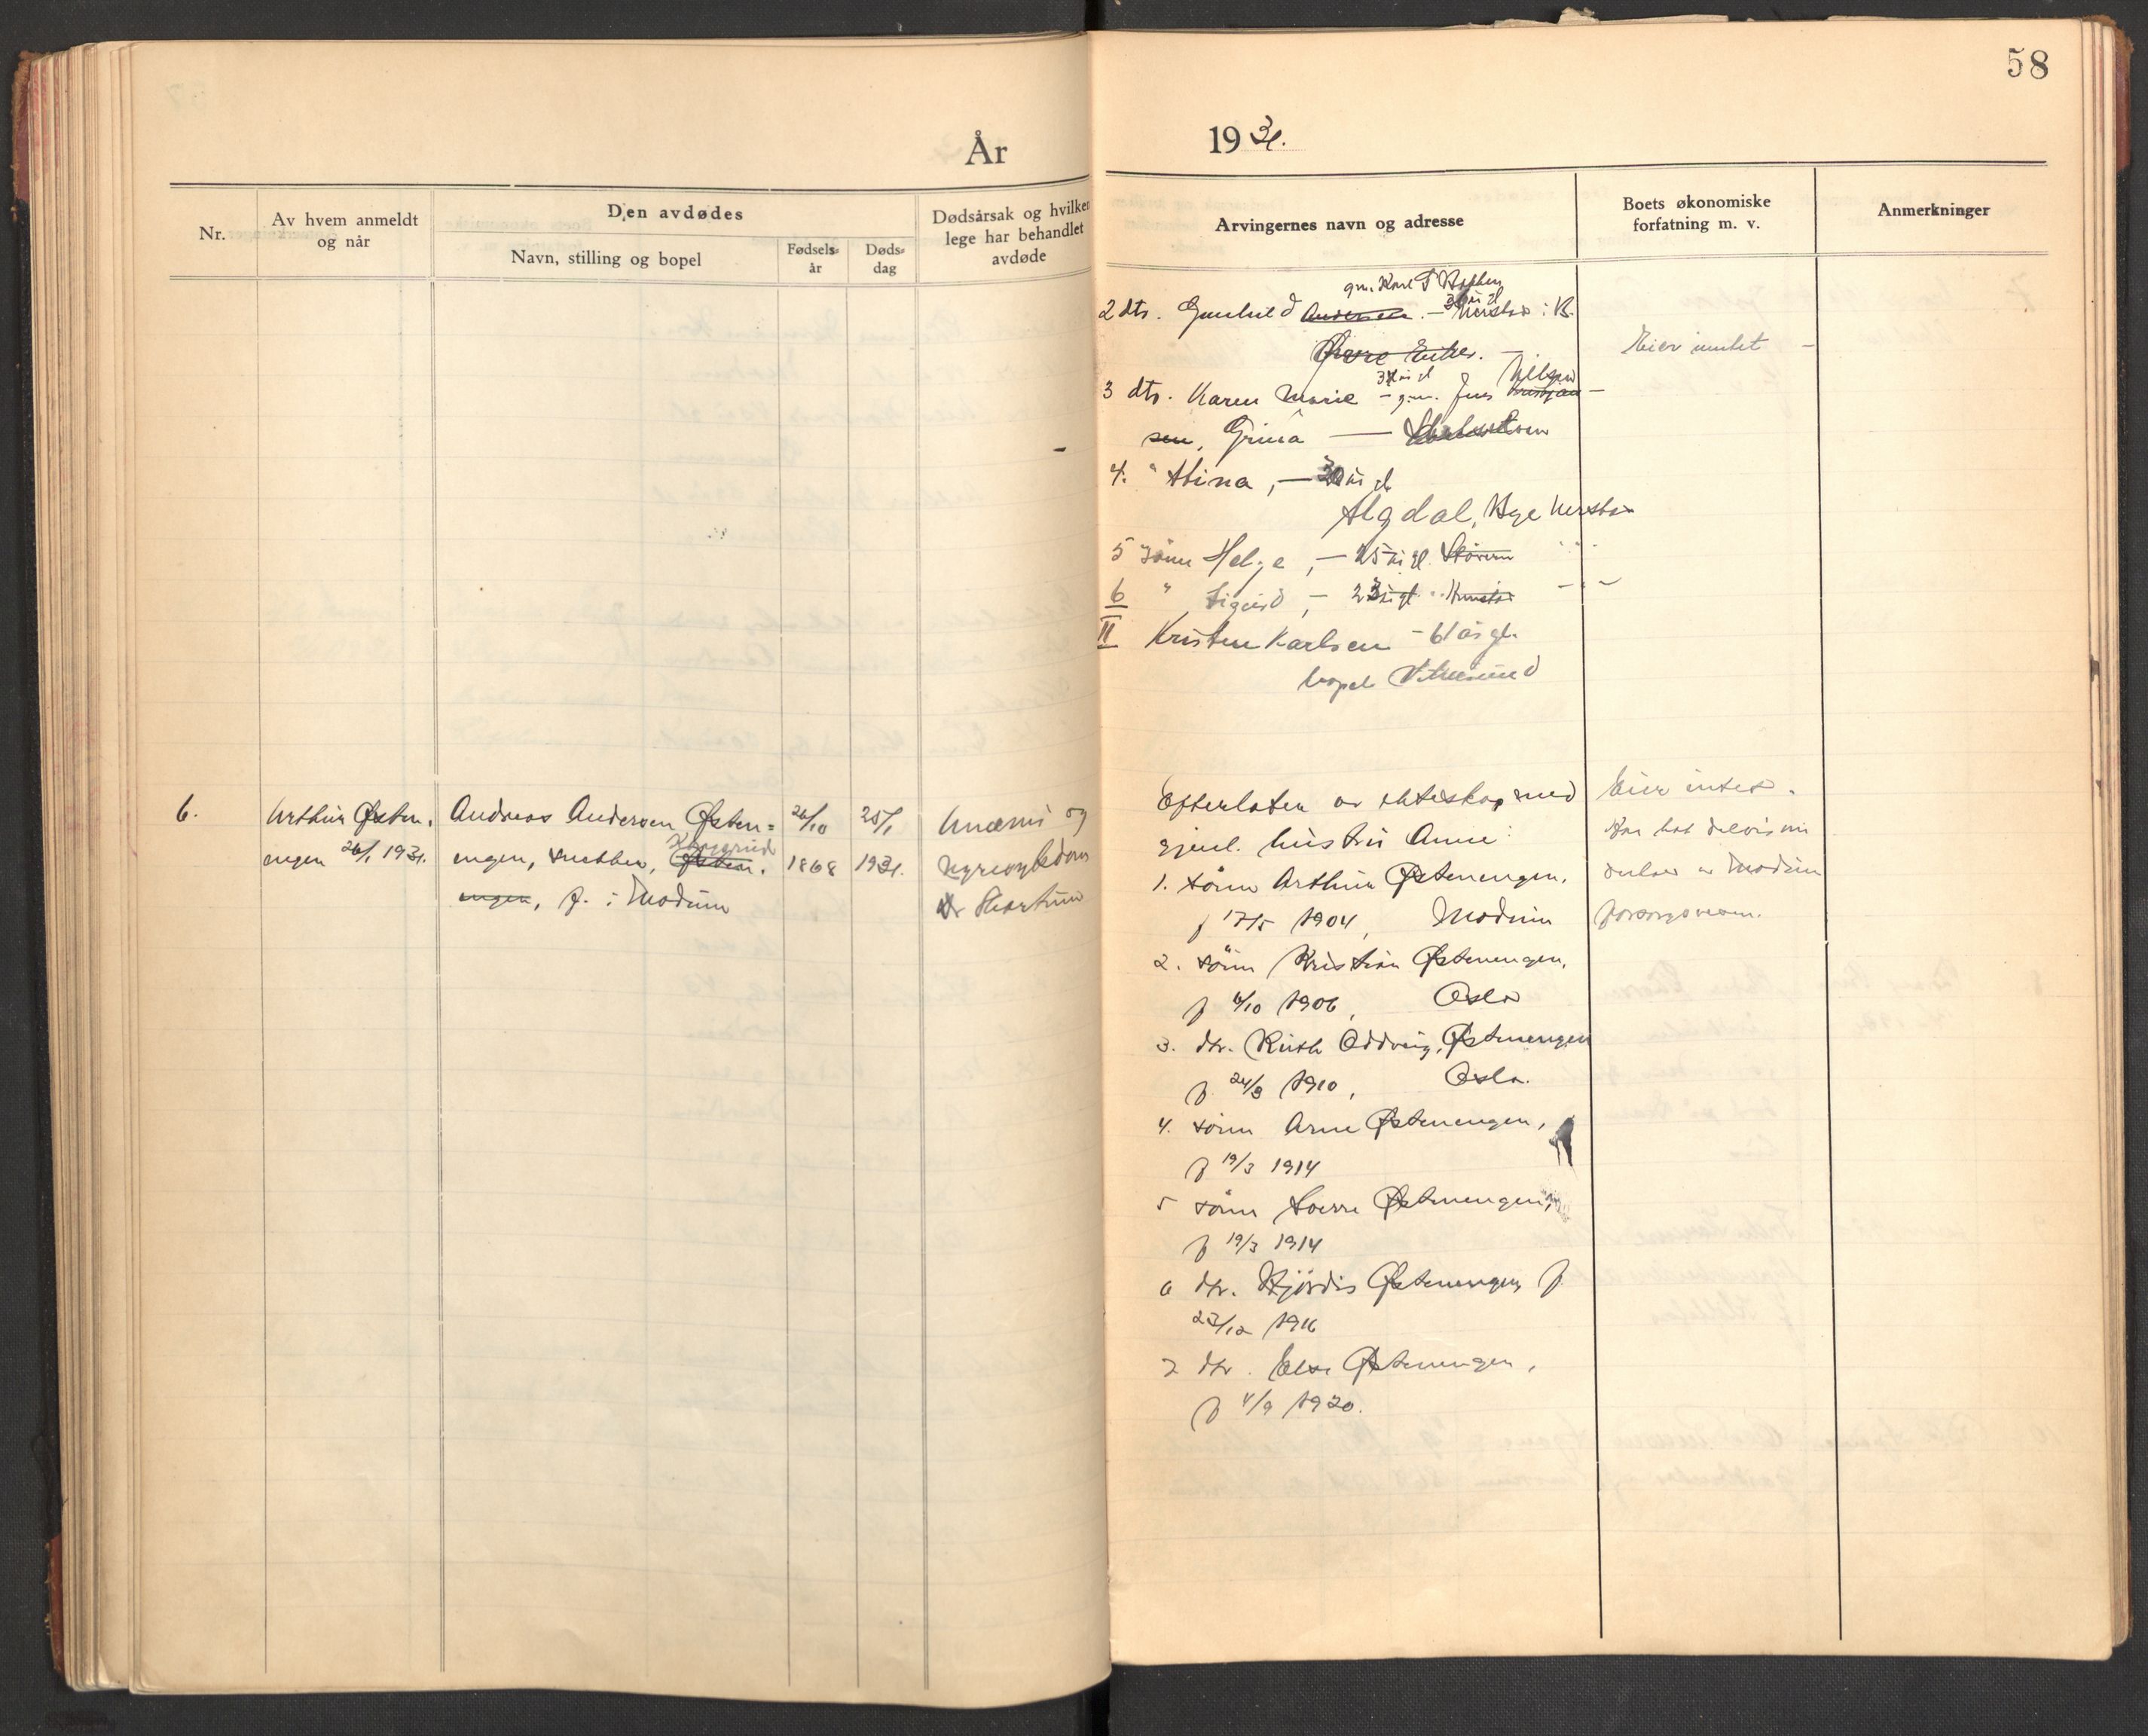 58
År 1931.
Nr.
Av hvem anmeldt
og når
Den avdødes
Navn, stilling og bopel
Fødsels-
år
Døds-
dag
Dødsårsak og hvilken
lege har behandlet
avdøde
Arvingernes navn og adresse
Boets økonomiske
forfatning m. v.
Anmerkninger
gm. Karl
2 dtr. Gunhild Andersen
Øvre Eiker.
Eier intet
3 dtr. Karen Marie - gm. Jens
sen, Grina
4. " Stina, - 30 år gl
Sigdal,
5 sønn Helge, - 25 år gl.
6 " Sigurd, - 23 år gl.
II Kristen Karlsen - 61 år gl.
bopel Vikersund
6.
Arthur Østen-
engen 26/1 1931.
Andreas Andersen Østen=
engen, snekker, Østen-
engen, f. i Modum
26/10
1868
25/1
1931.
Anæmi og
nyresykdom
Dr
Efterlater av ekteskap med
gjenl. hustru Anne:
1. sønn Arthur Østenengen,
f 17/5 1904, Modum
2. sønn Kristian Østenengen,
f 6/10 1906, Oslo
3. dtr. Ruth Oddveig Østenengen
f. 24/8 1910, Oslo.
4. sønn Arne Østenengen,
f 19/3 1914
5 sønn Sverre Østenengen,
f 19/3 1914
6 dtr. Hjørdis Østenengen f
23/12 1916
7 dtr. Else Østenengen,
f 4/9 1920.
Eier intet.
Har hatt delvis un
derhold av Modum
forsorgsvesen.